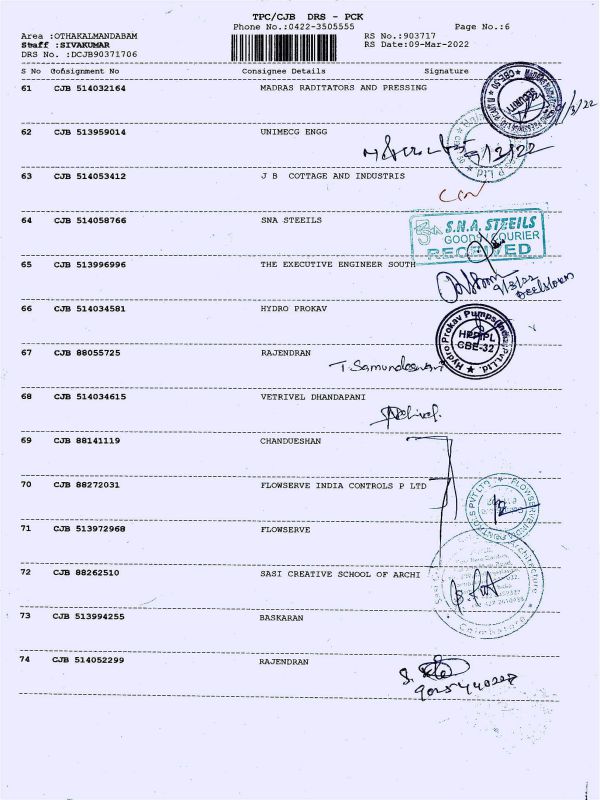 TPC/CJB DRS - PCK
Phone No.:0422-3505555 Page No.:6
Area :OTHAKALMANDABAM RS No.:903717
Staff :SIVAKUMAR RS Date:09-Mar-2022
DRS No. :DCJB90371706
S No Consignment No Consignee Details Signature
61 CJB 514032164 MADRAS RADITATORS AND PRESSING
SECURITY
62 CJB 513959014 UNIMECG ENGG
9/3/22
63 CJB 514053412 J B COTTAGE AND INDUSTRIS
64 CJB 514058766 SNA STEEILS
S.N.A. STEEILS
GOODS / COURIER
RECEIVED
65 CJB 513996996 THE EXECUTIVE ENGINEER SOUTH
9/3/22
66 CJB 514034581 HYDRO PROKAV
Hydro Prokav Pumps (India) Pvt. Ltd.
HPPIPL
CBE-32
67 CJB 88055725 RAJENDRAN
T. Samundeswari
68 CJB 514034615 VETRIVEL DHANDAPANI
69 CJB 88141119 CHANDUESHAN
70 CJB 88272031 FLOWSERVE INDIA CONTROLS P LTD
71 CJB 513972968 FLOWSERVE
72 CJB 88262510 SASI CREATIVE SCHOOL OF ARCHI
Architecture
Coimbatore
73 CJB 513994255 BASKARAN
74 CJB 514052299 RAJENDRAN